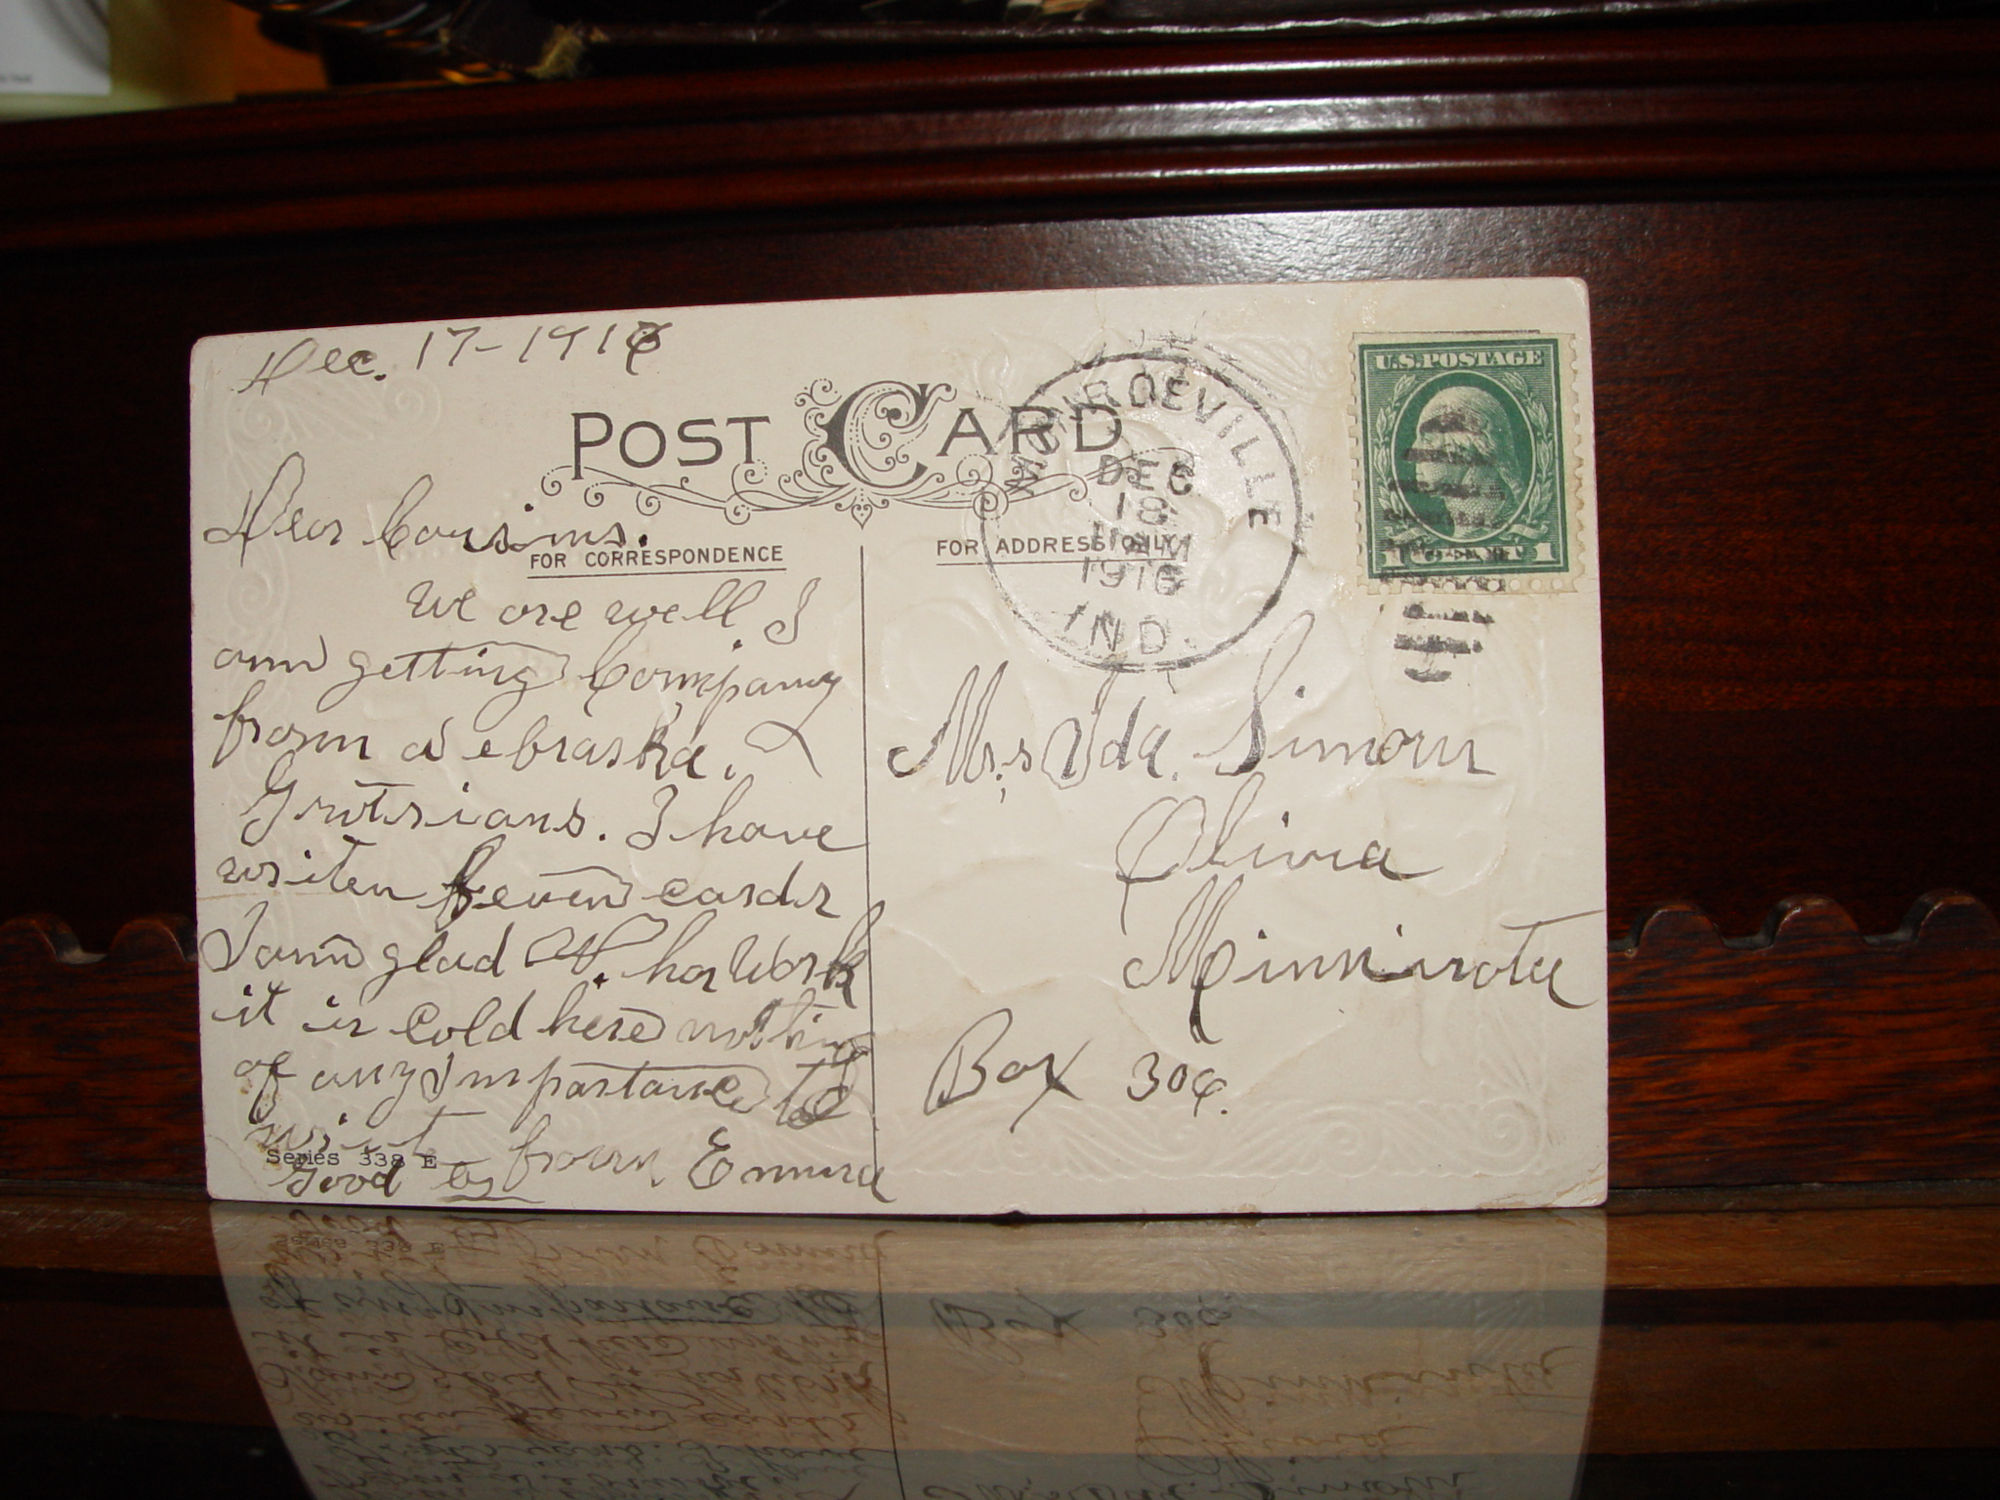 Dec. 17-1916
POST CARD
Dear Cousins.
FOR CORRESPONDENCE
We are well I
am getting Company
from Nebraska.
Grotrians. I have
writen seven cards
I am glad A. has Work
it is cold here nothing
of any Importance to
writ
Series 338 E
Good by from Emma
FOR ADDRESS ONLY
MONROEVILLE
DEC
18
1916
IND.
U.S. POSTAGE
1 CENT 1
Mrs Ida. Simon
Olivia
Minnisota
Box 306.